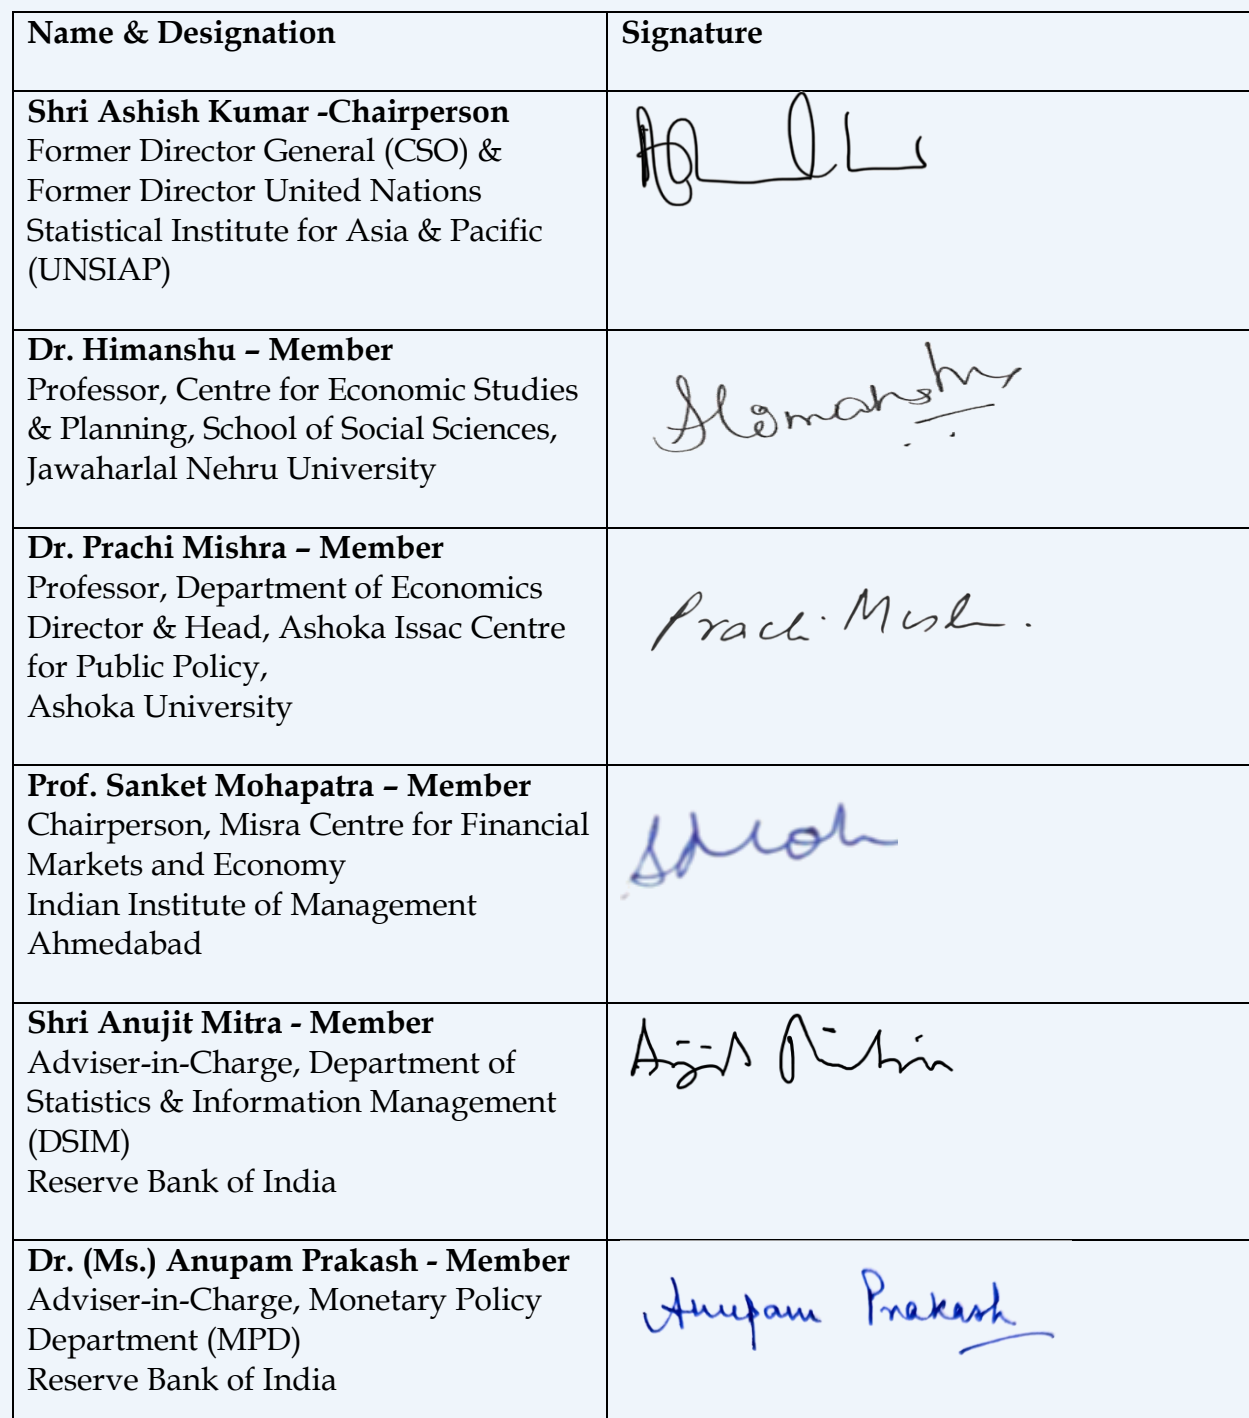 Name & Designation
Signature
Shri Ashish Kumar -Chairperson
Former Director General (CSO) &
Former Director United Nations
Statistical Institute for Asia & Pacific
(UNSIAP)
Dr. Himanshu – Member
Professor, Centre for Economic Studies
& Planning, School of Social Sciences,
Jawaharlal Nehru University
Himanshu
Dr. Prachi Mishra – Member
Professor, Department of Economics
Director & Head, Ashoka Issac Centre
for Public Policy,
Ashoka University
Prof. Sanket Mohapatra – Member
Chairperson, Misra Centre for Financial
Markets and Economy
Indian Institute of Management
Ahmedabad
Shri Anujit Mitra - Member
Adviser-in-Charge, Department of
Statistics & Information Management
(DSIM)
Reserve Bank of India
Dr. (Ms.) Anupam Prakash - Member
Adviser-in-Charge, Monetary Policy
Department (MPD)
Reserve Bank of India
Anupam Prakash